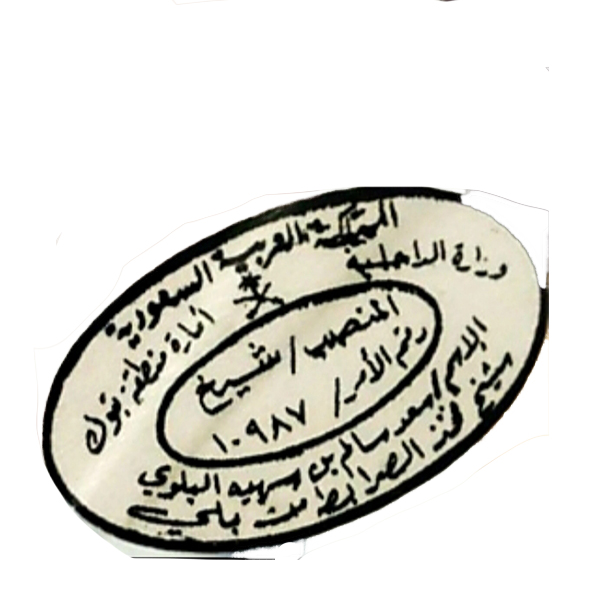 المملكة العربية السعودية
وزارة الداخلية
امارة منطقة تبوك
المنصب / شيخ
رقم الأمر / ١٠٩٨٧
الاسم / سعد سالم بن سهيه البلوي
شيخ فخذ من بلي